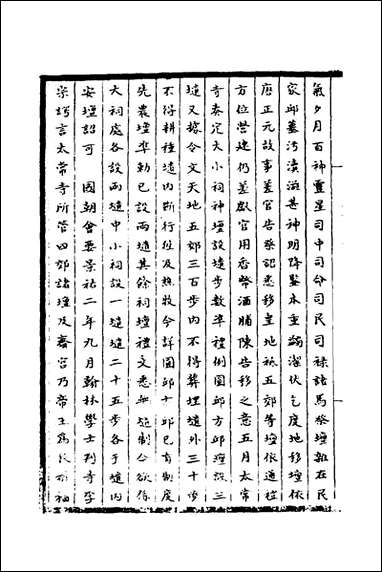 氣夕月百神靈星司中司命司民司祿諸馬祭壇雜在民
家邱墓汚瀆遊甚神明降鑒本重蠲潔伏乞度地移壇依
唐正元故事差官告祭詔悉移主地祗五郊等壇依道從
方位營建仍差獻官用香幣酒脯陳告移之意五月太常
寺奏定大小祠神壇設壝步數準禮例圜邱方邱壇設三
壝又據令文天地五郊三百步內不得葬埋壝外三十步
不得耕種壝內斷行從及熱牧今詳圜邱十邱已有制度
先農壇準勅已設兩壝其餘祠壇禮文悉無壝制今欲係
大祠處各設兩壝中小祠設一壝壝二十五步各于壝內
安壇詔可　國朝會要景祐二年九月翰林學士判寺李
宗諤言太常寺所管四郊諸壇及齋宮乃帝王爲民